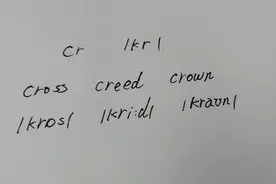 cr /kr/
cross creed crown
/krɒs/ /kri:d/ /kraʊn/